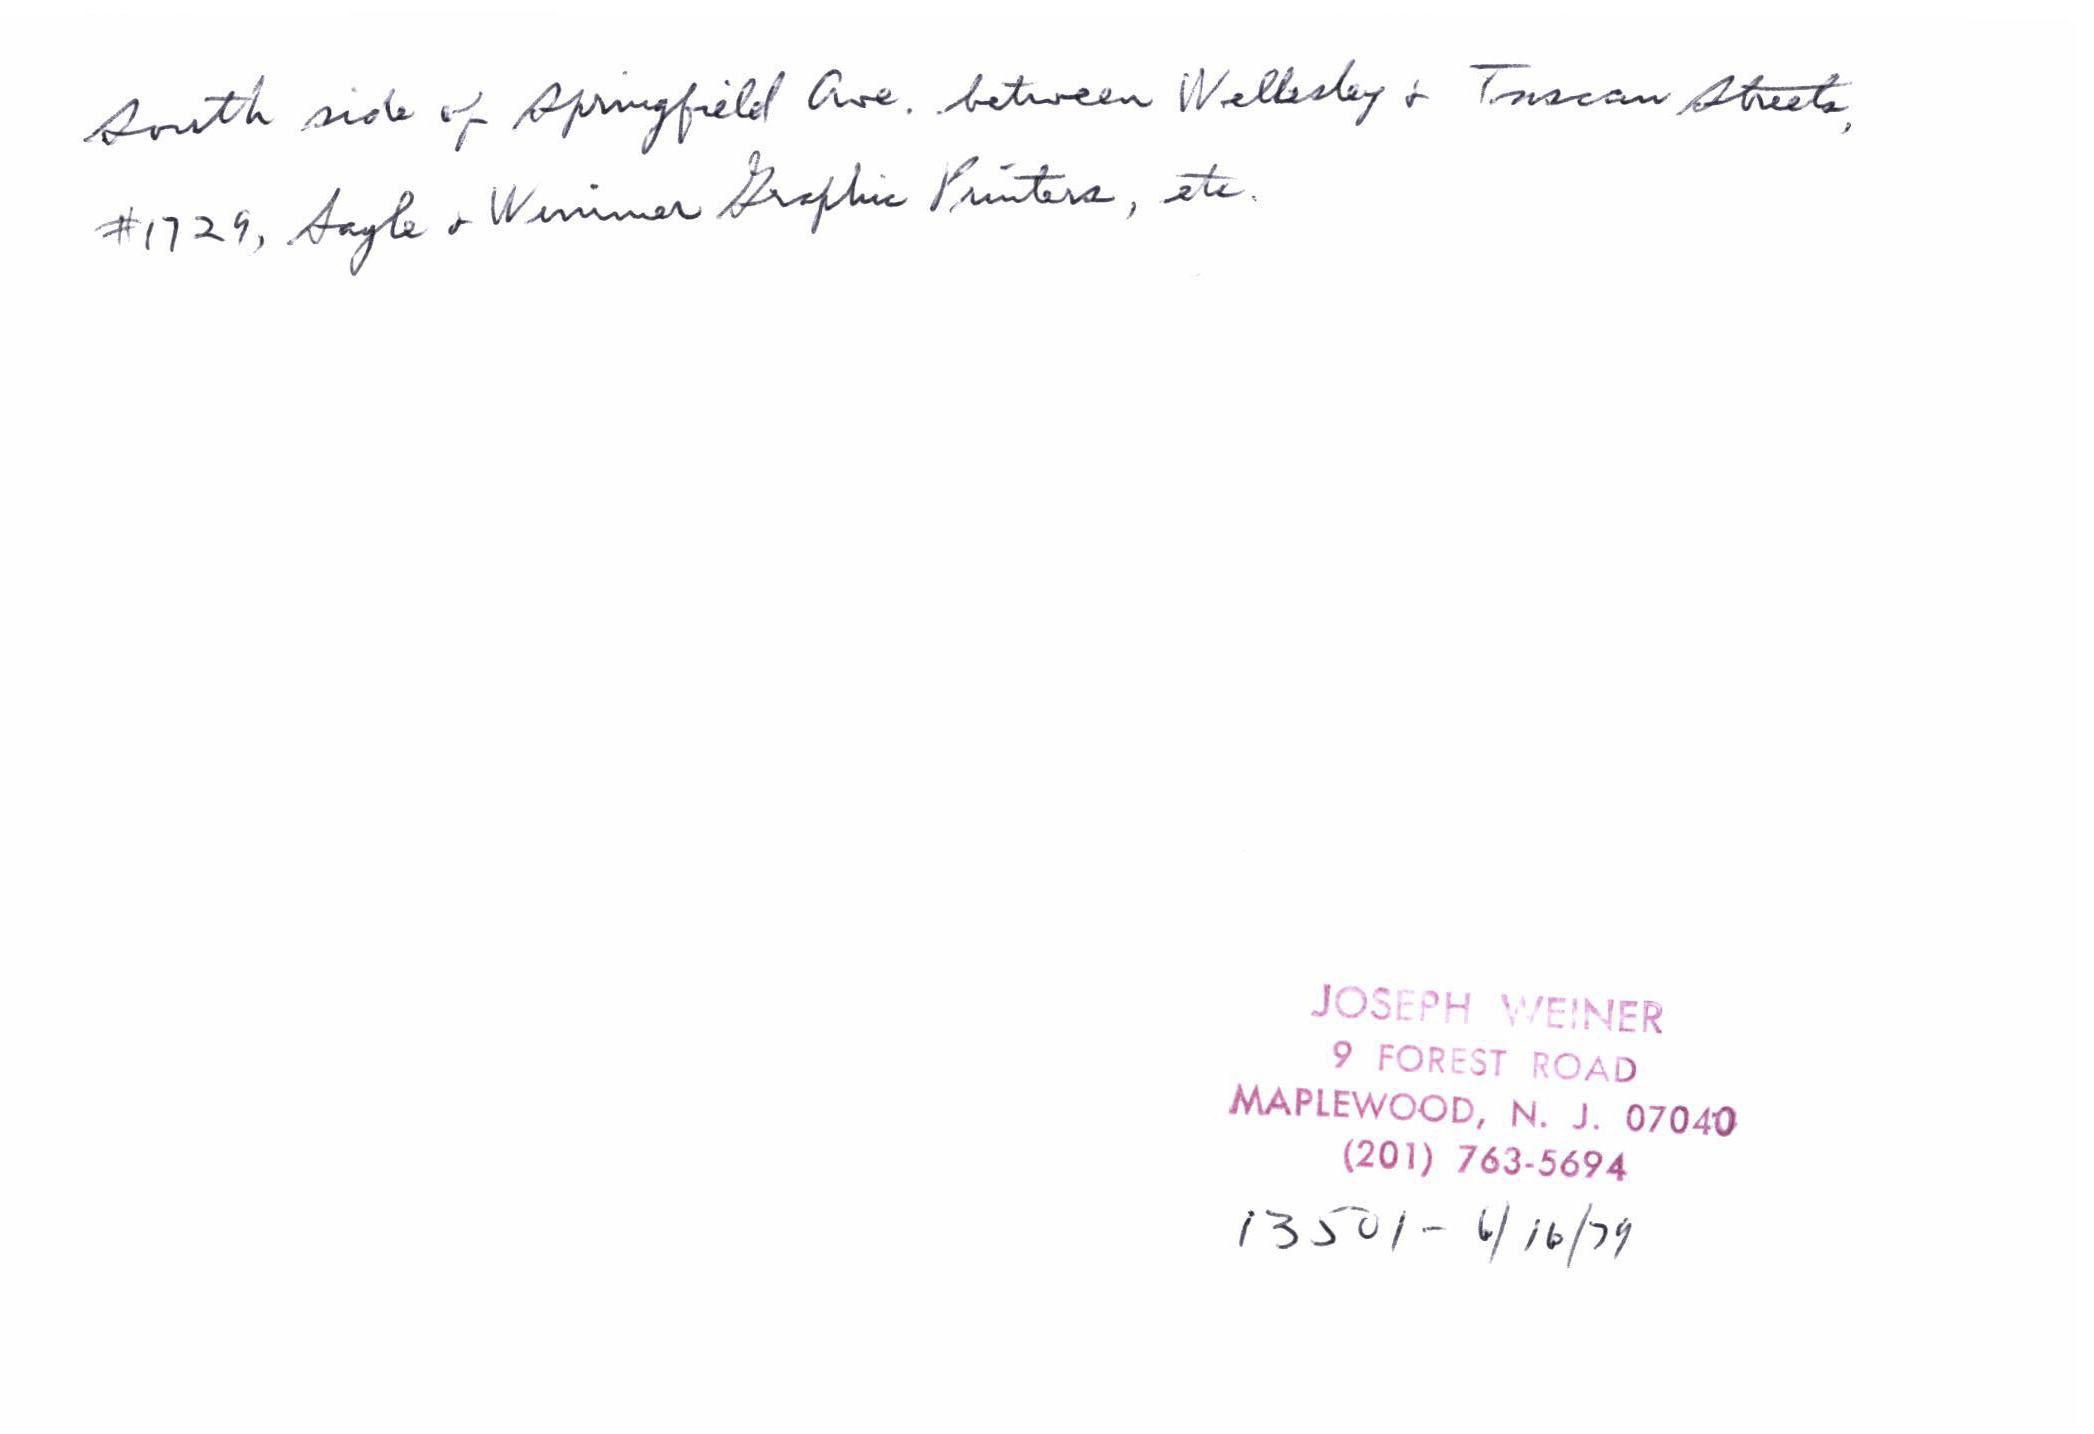 South side of Springfield Ave. between Wellesley & Tuscan Streets,
#1729, Sayle & Wimmer Graphic Printers, etc.
JOSEPH WEINER
9 FOREST ROAD
MAPLEWOOD, N. J. 07040
(201) 763-5694
13501 - 6/16/79